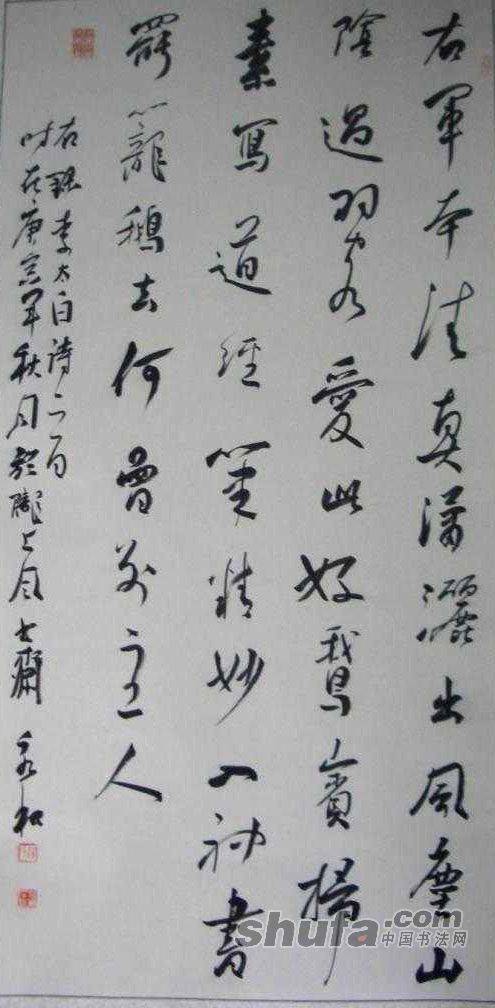 右軍本清真瀟灑出風塵山
陰過羽客愛此好鵝賓掃
素寫道經筆精妙入神書
罷籠鵝去何曾別主人
右錄李太白詩一首
時在庚寅年秋月於隴上齋永和
shufa.com
中国书法网